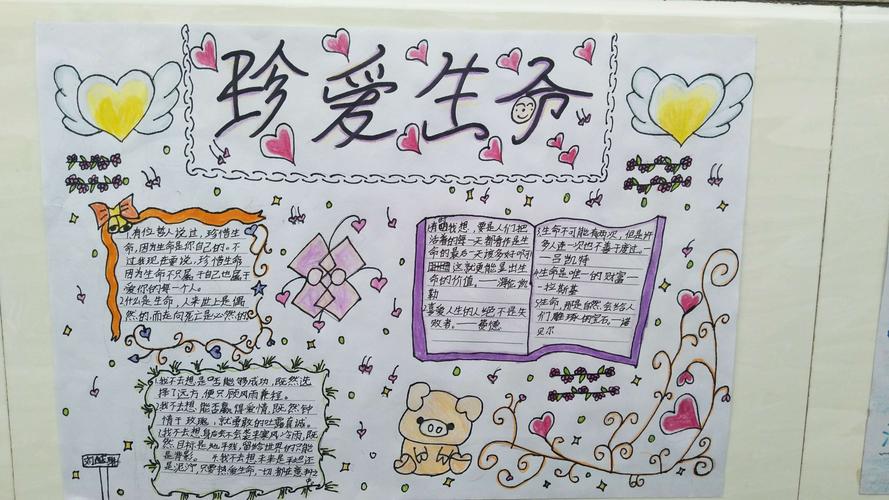 珍爱生命
1.有位哲人说过,珍惜生
命,因为生命是你自己的。不
过我现在要说,珍惜生命
因为生命不只属于自己也属于
爱你的每一个人。
2.什么是生命,人来世上是偶
然的,而走向死亡是必然的
我想,要是人们把
活着的每一天都看作是生
命的最后一天该多好啊
这就更能显出生
命的价值。——海伦凯
勒
2喜爱人生的人绝不是失
败者。——费德
3生命不可能有两次,但是许
多人连一次也不善于度过。—
—吕凯特
4生命是唯一的财富—
—拉斯基
5生命,那是自然会给人
们雕琢的宝石。—诺
贝尔
1.我不去想,是否能够成功,既然选
择了远方,便只顾风雨兼程。
2.我不去想,能否赢得爱情,既然钟
情于玫瑰,就勇敢的吐露真诚。
3.我不去想身后会不会袭来寒风冷雨,既
然目标是地平线,留给世界的只能
是背影。 4.我不去想未来是平坦还
是泥泞,只要热爱生命,一切都在意料之